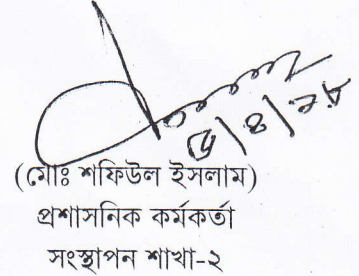 (মোঃ শফিউল ইসলাম)
প্রশাসনিক কর্মকর্তা
সংস্থাপন শাখা-২